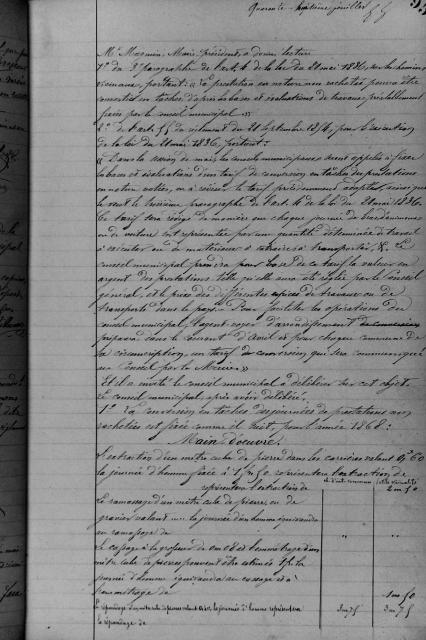 Quarante-septième feuillet
Mr Magnien, Maire, président, a donné lecture
1° du 2e paragraphe de l'art. 4 de la loi du 21 mai 1836, sur les chemins
vicinaux, portant: « La prestation en nature non rachetée pourra être
convertie en tâches d'après les bases et évaluations de travaux préalablement
fixées par le conseil municipal »
2° de l'art. du règlement du 21 Septembre pour l'exécution
de la loi du 21 mai 1836, portant:
« Dans la session de mai, les conseils municipaux seront appelés à fixer
les bases et évaluations d'un tarif de conversion en tâches des prestations
en nature votées, ou à réviser le tarif précédemment adopté, ainsi que
le veut le paragraphe de l'art. 4 de la loi du 21 mai 1836.
Ce tarif sera rédigé de manière que chaque journée de bras d'hommes
ou de voiture soit représentée par une quantité déterminée de travail
à exécuter ou de matériaux à extraire, à transporter, &. Le
conseil municipal prendra pour base de ce tarif la valeur en
argent des prestations, telle qu'elle aura été fixée par le Conseil
général, et le prix des différentes espèces de travaux ou de
transports dans le pays. Pour faciliter les opérations du
conseil municipal, l'agent voyer d'arrondissement
préparera dans le courant d'avril et pour chaque commune de
sa circonscription, un tarif de conversion qui sera communiqué
au Conseil par le Maire. »
Et il a invité le conseil municipal à délibérer sur cet objet.
Le conseil municipal, après avoir délibéré,
1° La conversion en tâches des journées de prestations non
rachetées est fixée comme il suit, pour l'année 1868:
Main d'œuvre.
L'extraction d'un mètre cube de pierre dans les carrières valant 0f 60
la journée d'homme fixée à 1f 50 représentera l'extraction de
représentera l'extraction de
2m 50
Le ramassage d'un mètre cube de pierre, ou de
gravier valant " " la journée d'homme équivaudra
au ramassage de " "
Le cassage à la grosseur de 0m 08 et l'emmétrage d'un
mètre cube de pierres pouvant être estimés 1f la
journée d'homme équivaudra au cassage et à
l'emmétrage de 1m 50
Le répandage d'un mètre cube de pierres valant la journée d'homme représentera
le répandage de